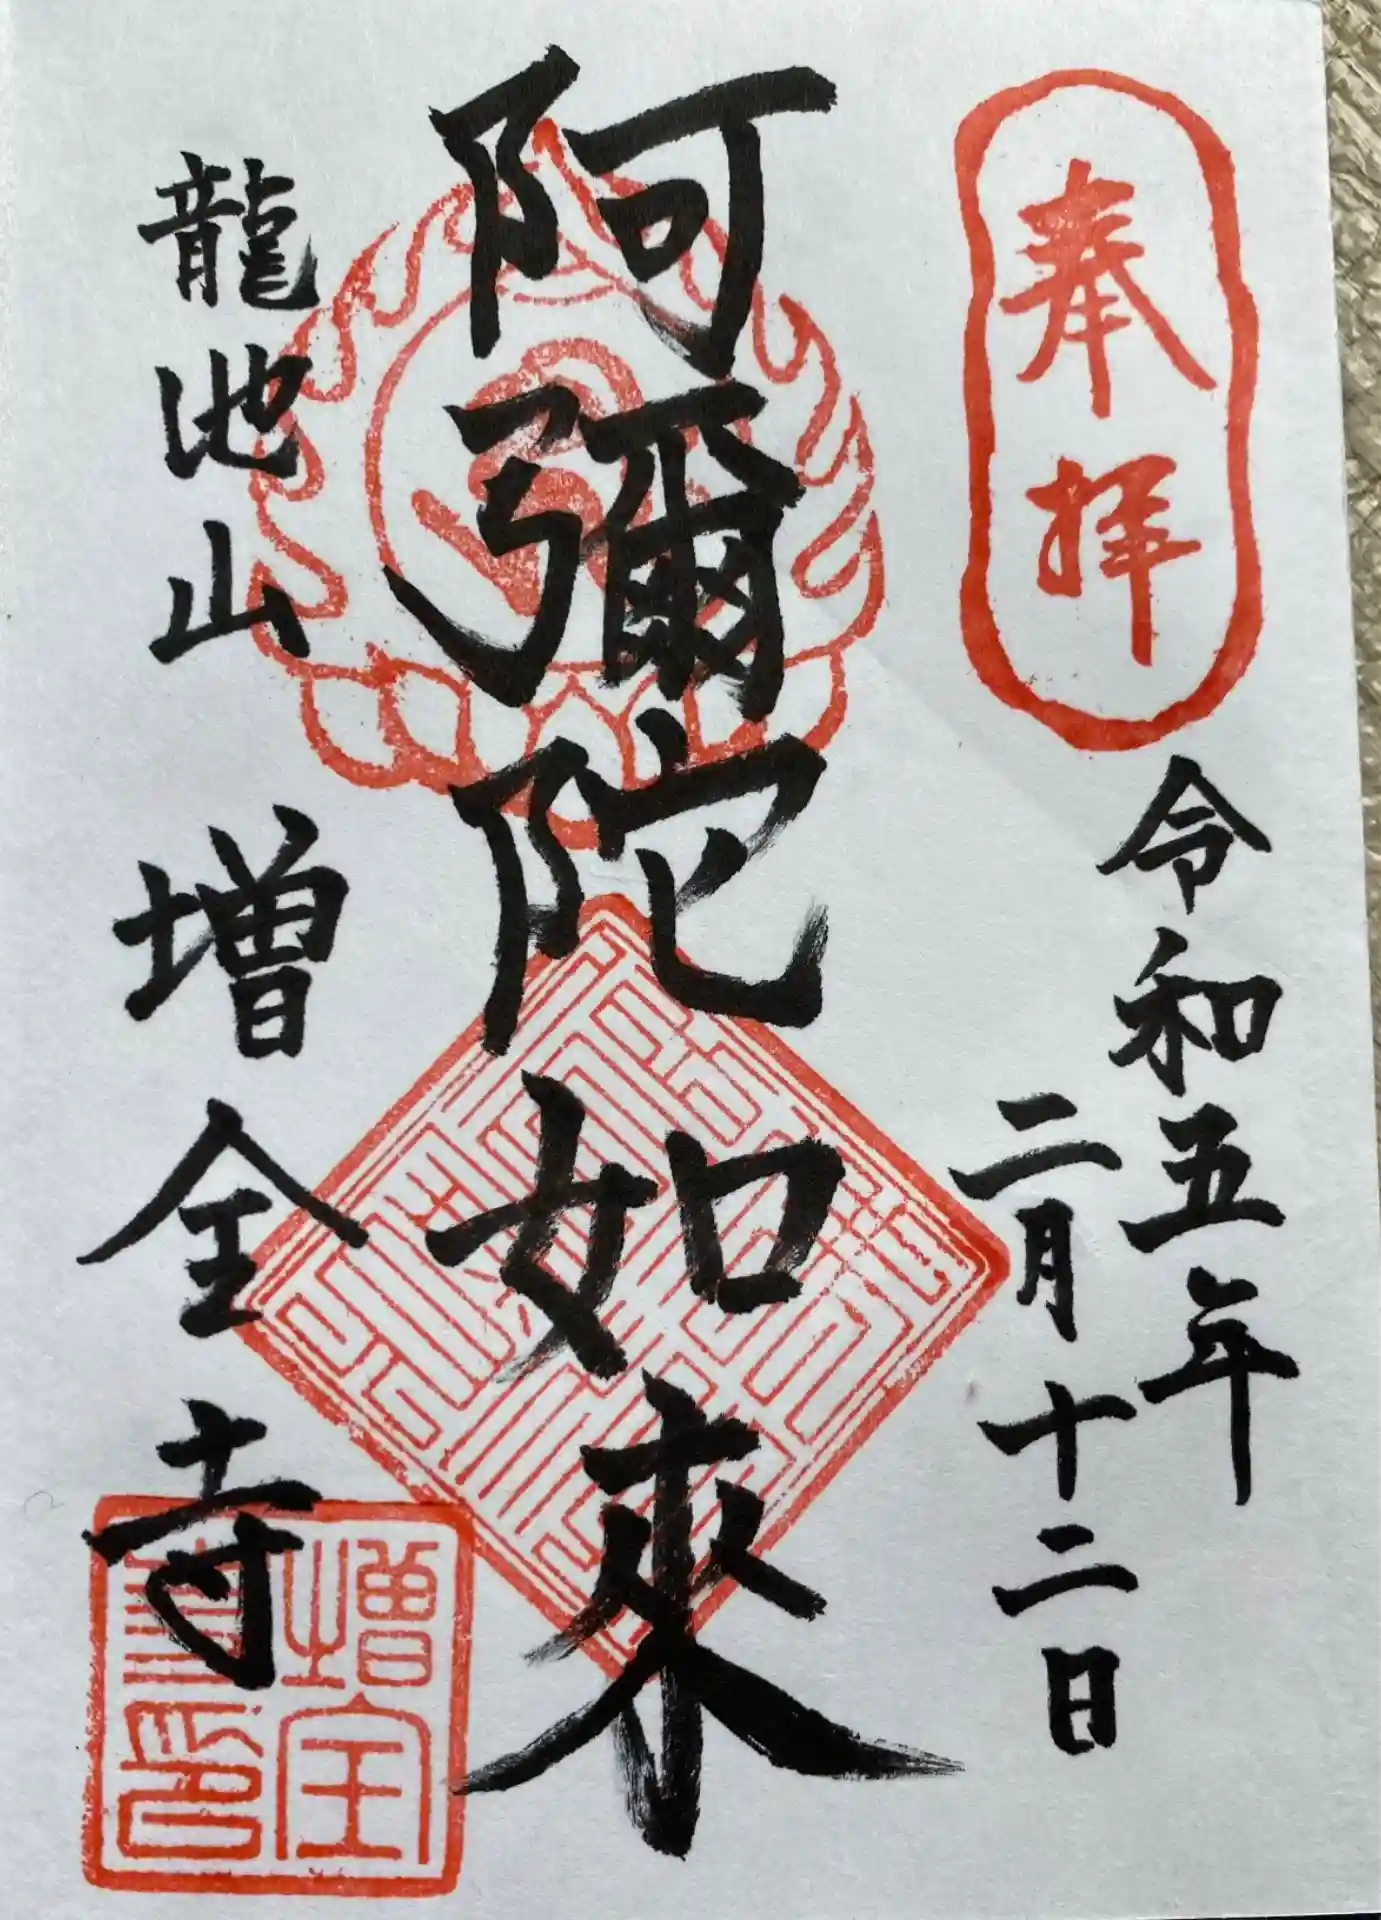 奉拝
令和五年
二月十二日
阿彌陀如來
龍池山 増全寺
増全
寺印